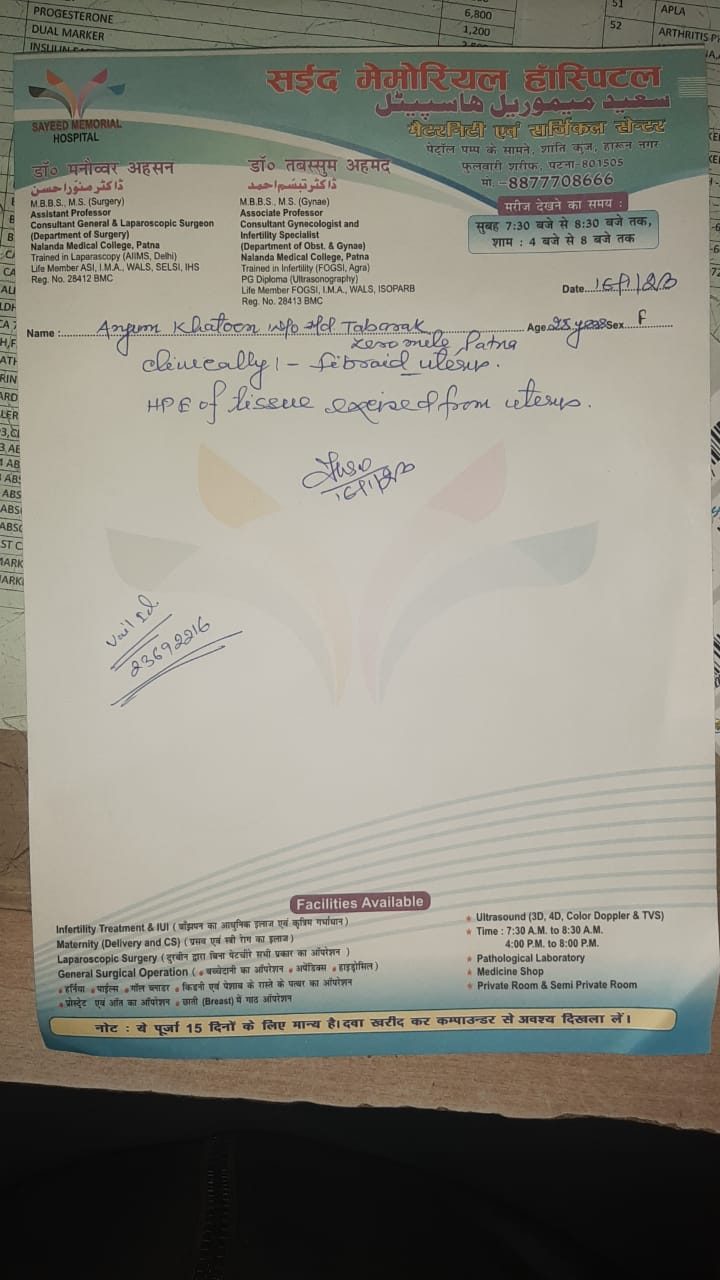 PROGESTERONE
DUAL MARKER
6,800
1,200
51
52
APLA
SAYEED MEMORIAL
HOSPITAL
सईद मेमोरियल हॉस्पिटल
سعید میموریل ہاسپیٹل
मैटरनिटी एवं सर्जिकल सेन्टर
पेट्रोल पम्प के सामने, शांति कुंज, हारून नगर
फुलवारी शरीफ, पटना-801505
मो.-8877708666
मरीज देखने का समय :
सुबह 7:30 बजे से 8:30 बजे तक,
शाम : 4 बजे से 8 बजे तक
डॉ० मनोव्वर अहसन
ڈاکٹر منوراحسن
M.B.B.S., M.S. (Surgery)
Assistant Professor
Consultant General & Laparoscopic Surgeon
(Department of Surgery)
Nalanda Medical College, Patna
Trained in Laparascopy (AIIMS, Delhi)
Life Member ASI, I.M.A., WALS, SELSI, IHS
Reg. No. 28412 BMC
डॉ० तबस्सुम अहमद
ڈاکٹر تبسم احمد
M.B.B.S., M.S. (Gynae)
Associate Professor
Consultant Gynecologist and
Infertility Specialist
(Department of Obst. & Gynae)
Nalanda Medical College, Patna
Trained in Infertility (FOGSI, Agra)
PG Diploma (Ultrasonography)
Life Member FOGSI, I.M.A., WALS, ISOPARB
Reg. No. 28413 BMC
Date
Name : Anjum Khatoon w/o Md Tabarak Age 25 years Sex F
Zero mile, Patna
Clinically :- fibroid uterus.
HPE of tissue excised from uterus.
Vail Id
23692216
Facilities Available
Infertility Treatment & IUI ( बाँझपन का आधुनिक इलाज एवं कृत्रिम गर्भाधान)
Maternity (Delivery and CS) ( प्रसव एवं स्त्री रोग का इलाज)
Laparoscopic Surgery ( दुरबीन द्वारा बिना पेटचीरे सभी प्रकार का ऑपरेशन )
General Surgical Operation ( बच्चेदानी का ऑपरेशन अपेंडिक्स हाइड्रोसिल)
हर्निया पाईल्स गॉल ब्लाडर किडनी एवं पेशाब के रास्ते के पत्थर का ऑपरेशन
प्रोस्टेट एवं आँत का ऑपरेशन छाती (Breast) में गाठ ऑपरेशन
Ultrasound (3D, 4D, Color Doppler & TVS)
Time : 7:30 A.M. to 8:30 A.M.
4:00 P.M. to 8:00 P.M.
Pathological Laboratory
Medicine Shop
Private Room & Semi Private Room
नोट : ये पूर्जा 15 दिनों के लिए मान्य है। दवा खरीद कर कम्पाउन्डर से अवश्य दिखला लें।